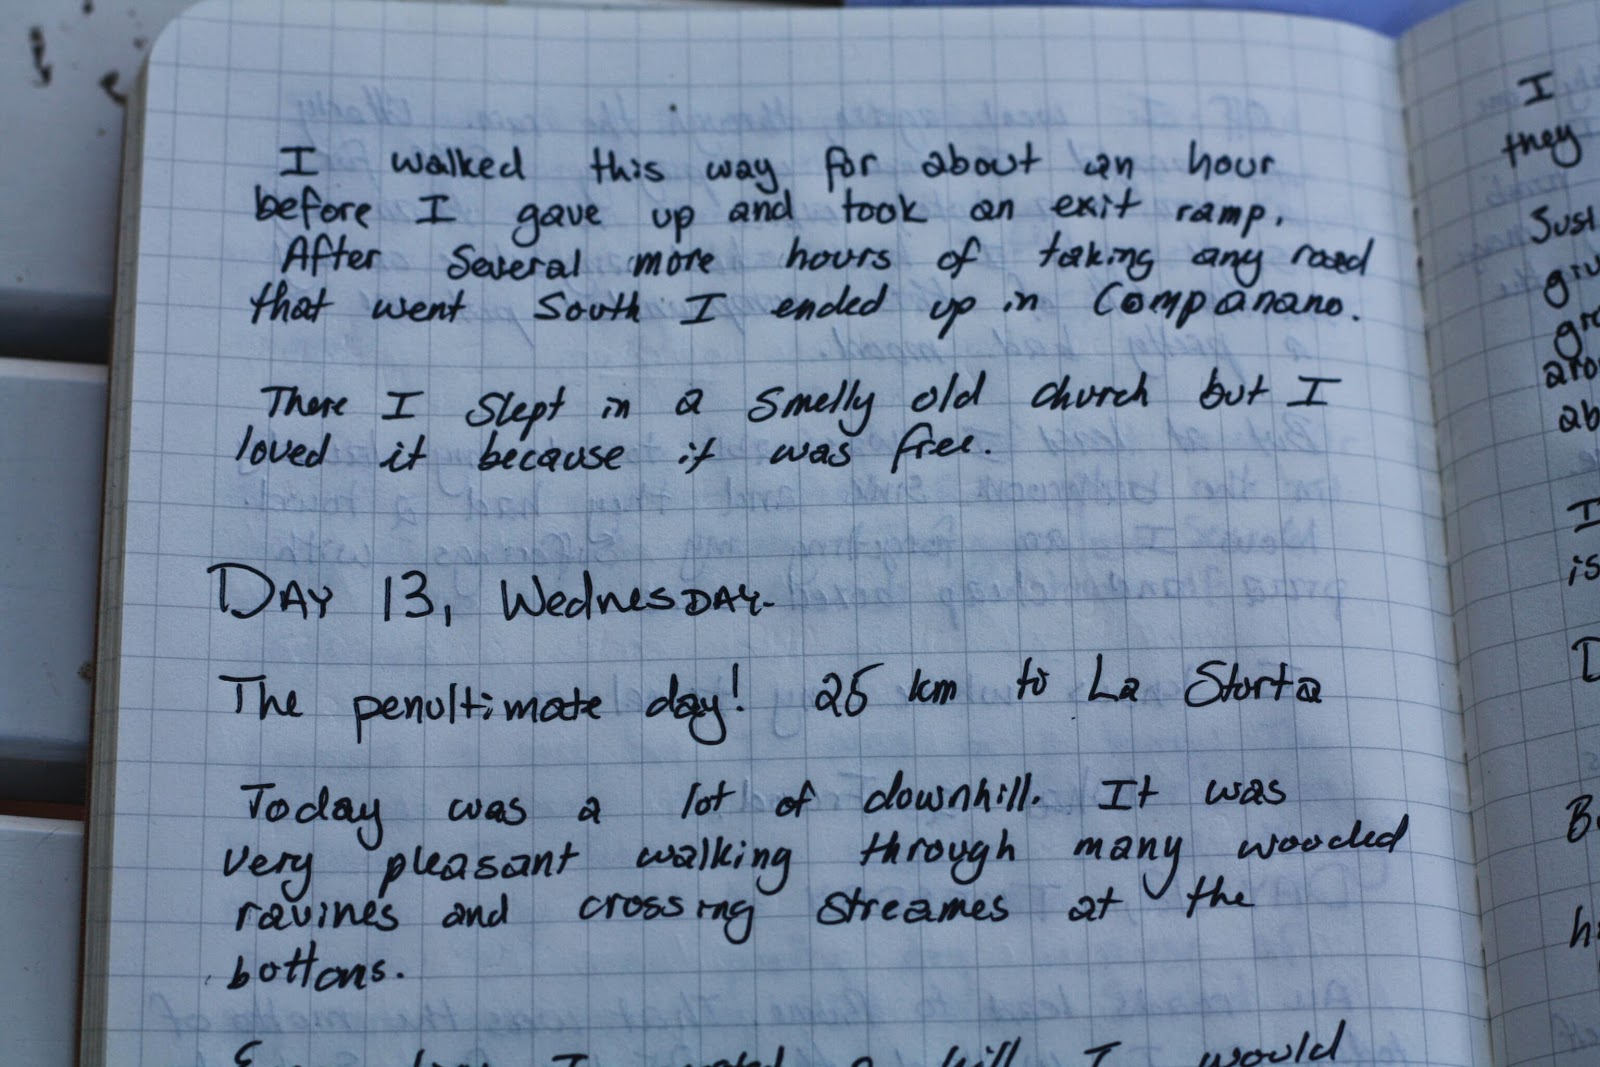 I walked this way for about an hour
before I gave up and took an exit ramp.
After several more hours of taking any road
that went South I ended up in Companano.
There I slept in a smelly old church but I
loved it because it was free.
DAY 13, WednesDAY-
The penultimate day! 25 km to La Storta
Today was a lot of downhill. It was
very pleasant walking through many wooded
ravines and crossing streames at the
bottoms.
I a hill I would
I
they
is